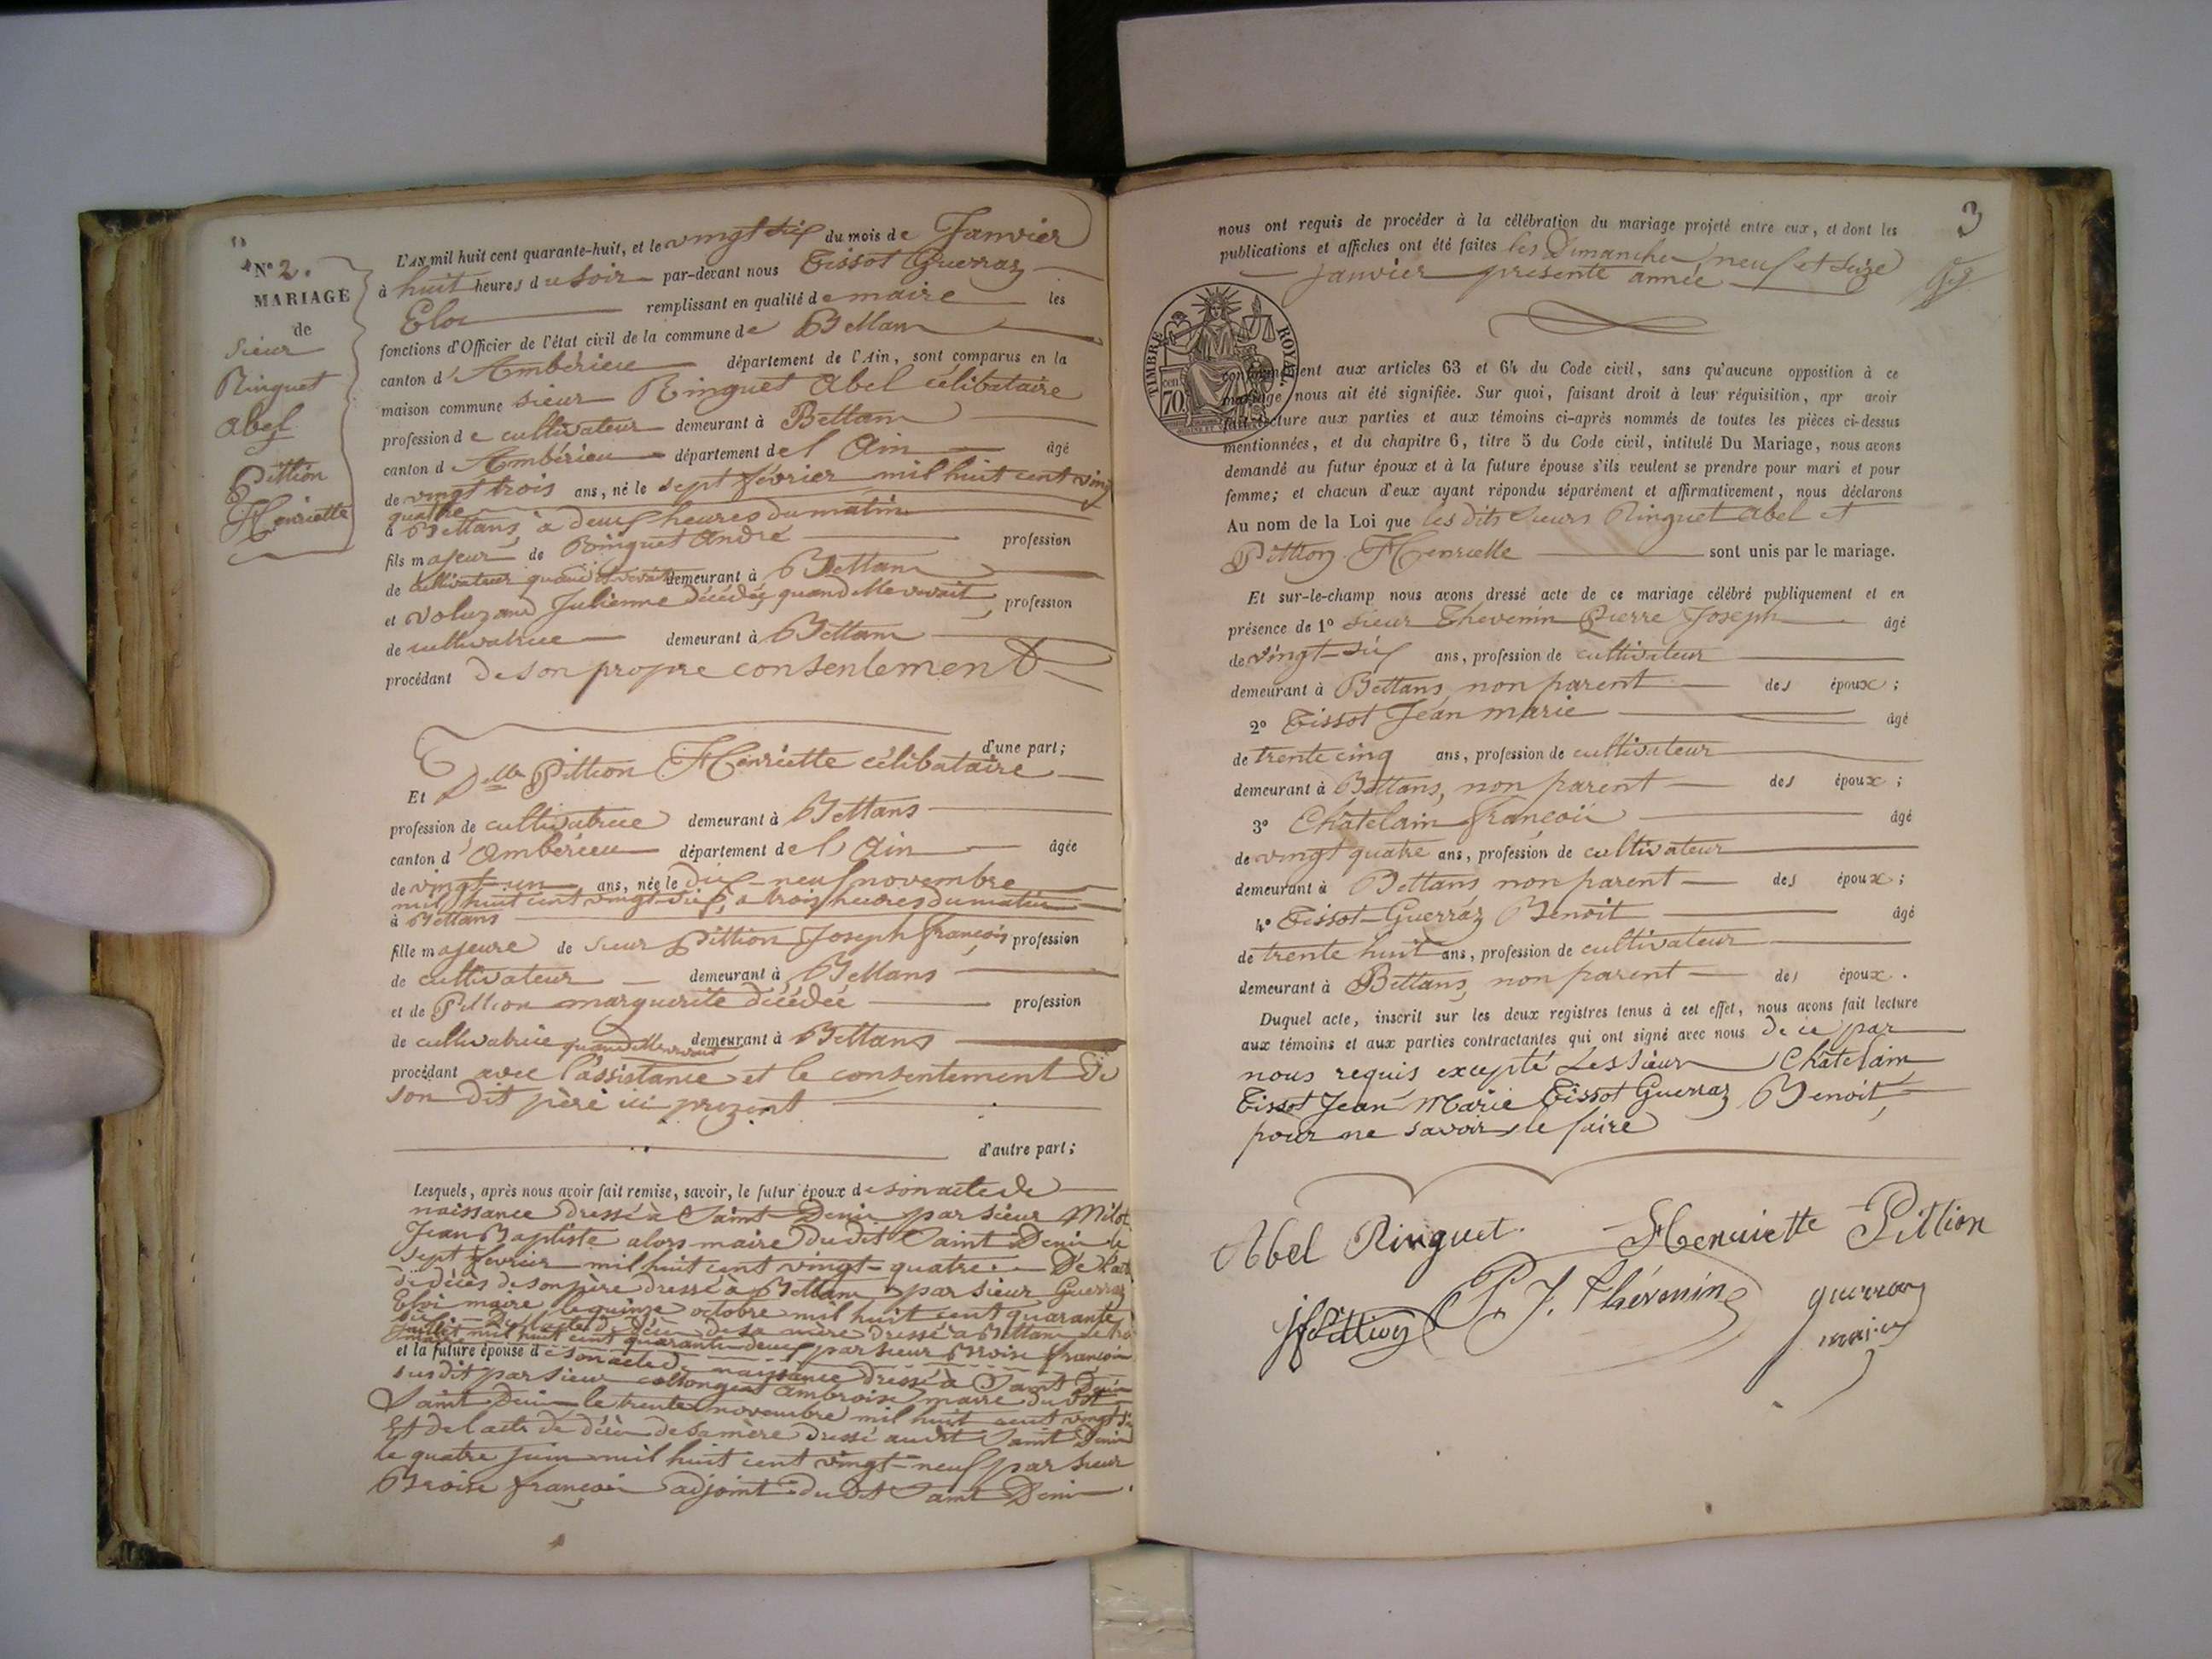 N° 2.
MARIAGE
de
sieur
Ringuet
Abel
&
Pittion
Henriette
L'AN mil huit cent quarante-huit, et le vingt six du mois de Janvier
à huit heures du soir par-devant nous Tissot Guerraz
Eloi remplissant en qualité de maire les
fonctions d'Officier de l'état civil de la commune de Bettans
canton d'Ambérieu département de l'Ain, sont comparus en la
maison commune sieur Ringuet Abel célibataire
profession de cultivateur demeurant à Bettans
canton d'Ambérieu département de l'Ain âgé
de vingt trois ans, né le sept février mil huit cent vingt
quatre
à Bettans, à deux heures du matin
fils majeur de Ringuet André profession
de cultivateur quand il vivait demeurant à Bettans
et Voluzand Julienne décédée quand elle vivait, profession
de cultivatrice demeurant à Bettans
procédant de son propre consentement
d'une part;
Et Delle Pittion Henriette célibataire
profession de cultivatrice demeurant à Bettans
canton d'Ambérieu département de l'Ain âgée
de vingt-un ans, née le dix-neuf novembre
mil huit cent vingt-six, à trois heures du matin
à Bettans
fille majeure de sieur Pittion Joseph françois profession
de cultivateur demeurant à Bettans
et de Pittion marguerite décédée profession
de cultivatrice quand elle vivait demeurant à Bettans
procédant avec l'assistance et le consentement de
son dit père ici prezent
d'autre part;
Lesquels, après nous avoir fait remise, savoir, le futur époux de son acte de
naissance dressé à Saint Denis par sieur Milot
Jean Baptiste alors maire dudit Saint Denis le
sept février mil huit cent vingt-quatre. De l'acte
de décès de son père dressé à Bettans par sieur Guerraz
Eloi maire le quinze octobre mil huit cent quarante
six De l'acte de décès de sa mère dressé à Bettans le
juillet mil huit cent quarante deux par sieur Broise françois
et la future épouse de son acte de naissance dressé à Saint Denis
susdit par sieur Collonges Ambroise maire dudit
Saint Denis le trente novembre mil huit cent vingt six
Et de l'acte de décès de sa mère dressé audit Saint Denis
le quatre juin mil huit cent vingt-neuf par sieur
Broise françois adjoint dudit Saint Denis
3
nous ont requis de procéder à la célébration du mariage projeté entre eux, et dont les
publications et affiches ont été faites les Dimanches neuf et seize
janvier presente année
TIMBRE ROYAL
70 cent
conformément aux articles 63 et 64 du Code civil, sans qu'aucune opposition à ce
mariage nous ait été signifiée. Sur quoi, faisant droit à leur réquisition, apr avoir
fait lecture aux parties et aux témoins ci-après nommés de toutes les pièces ci-dessus
mentionnées, et du chapitre 6, titre 5 du Code civil, intitulé Du Mariage, nous avons
demandé au futur époux et à la future épouse s'ils veulent se prendre pour mari et pour
femme; et chacun d'eux ayant répondu séparément et affirmativement, nous déclarons
Au nom de la Loi que les dits sieurs Ringuet Abel et
Pittion Henriette sont unis par le mariage.
Et sur-le-champ nous avons dressé acte de ce mariage célébré publiquement et en
présence de 1° sieur Thevenin Pierre Joseph âgé
de vingt-six ans, profession de cultivateur
demeurant à Bettans, non parent des époux;
2° Tissot Jean marie âgé
de trente cinq ans, profession de cultivateur
demeurant à Bettans, non parent des époux;
3° Chatelain françois âgé
de vingt quatre ans, profession de cultivateur
demeurant à Bettans non parent des époux;
4° Tissot-Guerraz Benoit âgé
de trente huit ans, profession de cultivateur
demeurant à Bettans, non parent des époux.
Duquel acte, inscrit sur les deux registres tenus à cet effet, nous avons fait lecture
aux témoins et aux parties contractantes qui ont signé avec nous de ce par
nous requis excepté Les sieurs Chatelain
Tissot Jean Marie Tissot Guerraz Benoit,
pour ne savoir le faire
Abel Ringuet. Henriette Pittion
jf Pittion P. J. Thévenin guerraz
maire